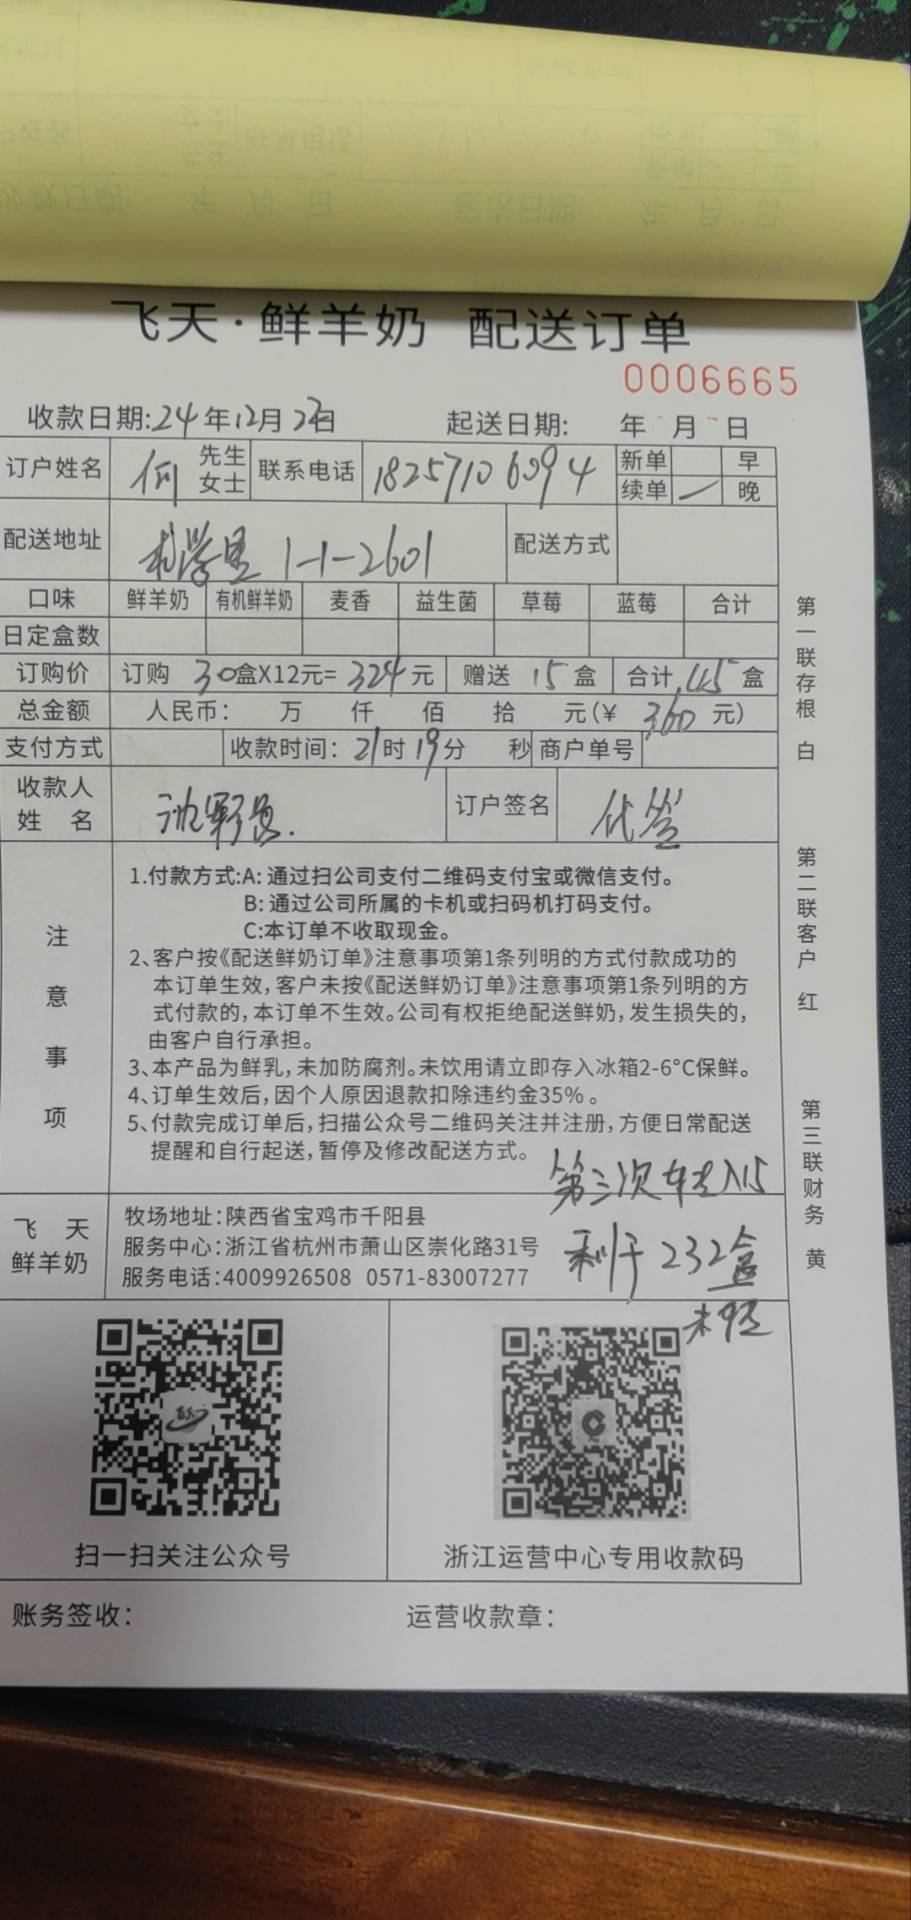 飞天·鲜羊奶 配送订单
0006665
收款日期:24年12月2日 起送日期: 年 月 日
订户姓名 何 先生 女士 联系电话 18257106094 新单 早
续单 晚
配送地址 学里 1-1-2601 配送方式
口味 鲜羊奶 有机鲜羊奶 麦香 益生菌 草莓 蓝莓 合计
日定盒数
订购价 订购 30盒X12元=324元 赠送 15盒 合计 45盒
总金额 人民币: 万 仟 佰 拾 元(¥ 360 元)
支付方式 收款时间: 21时19分 秒 商户单号
收款人
姓 名 订户签名 代签
注意事项
1.付款方式:A: 通过扫公司支付二维码支付宝或微信支付。
B: 通过公司所属的卡机或扫码机打码支付。
C:本订单不收取现金。
2、客户按《配送鲜奶订单》注意事项第1条列明的方式付款成功的
本订单生效,客户未按《配送鲜奶订单》注意事项第1条列明的方
式付款的,本订单不生效。公司有权拒绝配送鲜奶,发生损失的,
由客户自行承担。
3、本产品为鲜乳,未加防腐剂。未饮用请立即存入冰箱2-6°C保鲜。
4、订单生效后,因个人原因退款扣除违约金35%。
5、付款完成订单后,扫描公众号二维码关注并注册,方便日常配送
提醒和自行起送,暂停及修改配送方式。
第三次转入15
剩余232盒
未送
飞 天
鲜羊奶
牧场地址:陕西省宝鸡市千阳县
服务中心:浙江省杭州市萧山区崇化路31号
服务电话:4009926508 0571-83007277
扫一扫关注公众号
浙江运营中心专用收款码
账务签收: 运营收款章:
第一联存根 白
第二联客户 红
第三联财务 黄